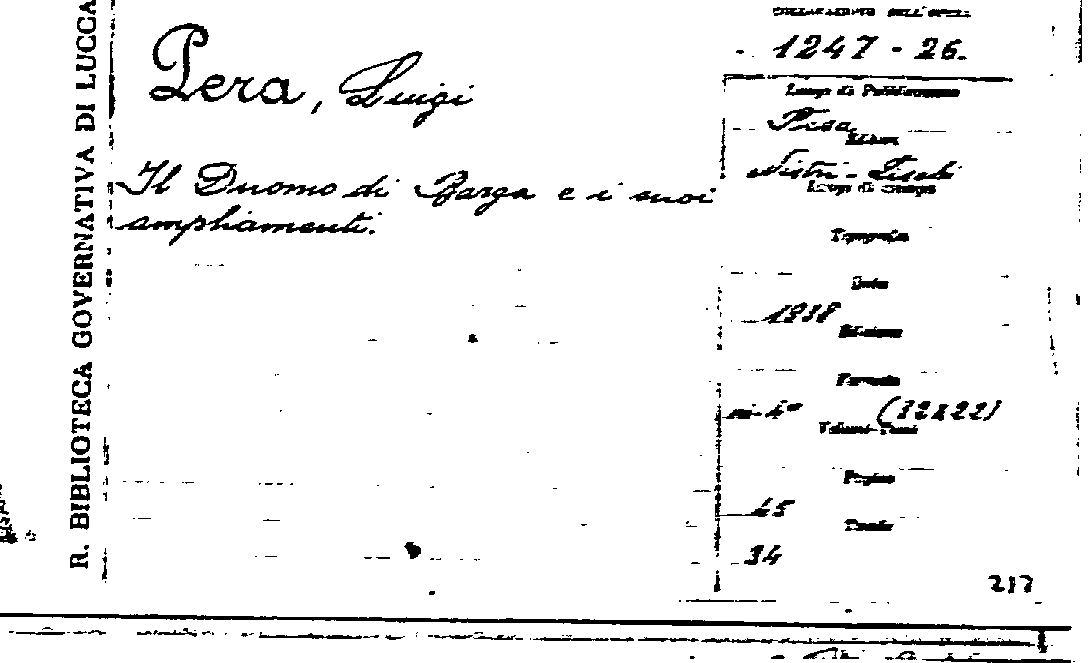 R. BIBLIOTECA GOVERNATIVA DI LUCCA
Pera, Luigi
Il Duomo di Barga e i suoi
ampliamenti.
COLLOCAMENTO DELL'OPERA
1247 - 26.
Luogo di Pubblicazione
Pisa
Editore
Nistri-Lischi
Luogo di stampa
Tipografia
Data
1938
Edizione
Formato
in-4°
Volumi-Tomi
Pagine
45
Tavole
34
217